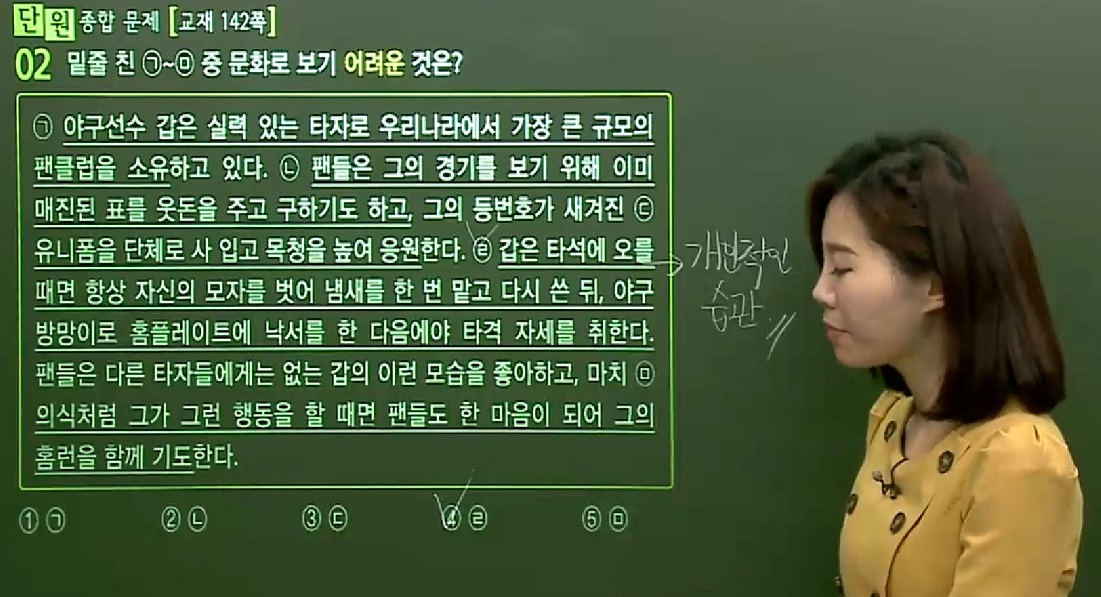 단원 종합 문제 [교재 142쪽]
02 밑줄 친 ㉠~㉤ 중 문화로 보기 어려운 것은?
㉠ 야구선수 갑은 실력 있는 타자로 우리나라에서 가장 큰 규모의
팬클럽을 소유하고 있다. ㉡ 팬들은 그의 경기를 보기 위해 이미
매진된 표를 웃돈을 주고 구하기도 하고, 그의 등번호가 새겨진 ㉢
유니폼을 단체로 사 입고 목청을 높여 응원한다. ㉣ 갑은 타석에 오를
때면 항상 자신의 모자를 벗어 냄새를 한 번 맡고 다시 쓴 뒤, 야구
방망이로 홈플레이트에 낙서를 한 다음에야 타격 자세를 취한다.
팬들은 다른 타자들에게는 없는 갑의 이런 모습을 좋아하고, 마치 ㉤
의식처럼 그가 그런 행동을 할 때면 팬들도 한 마음이 되어 그의
홈런을 함께 기도한다.
→ 개인적인
습관
① ㉠ ② ㉡ ③ ㉢ ④ ㉣ ⑤ ㉤